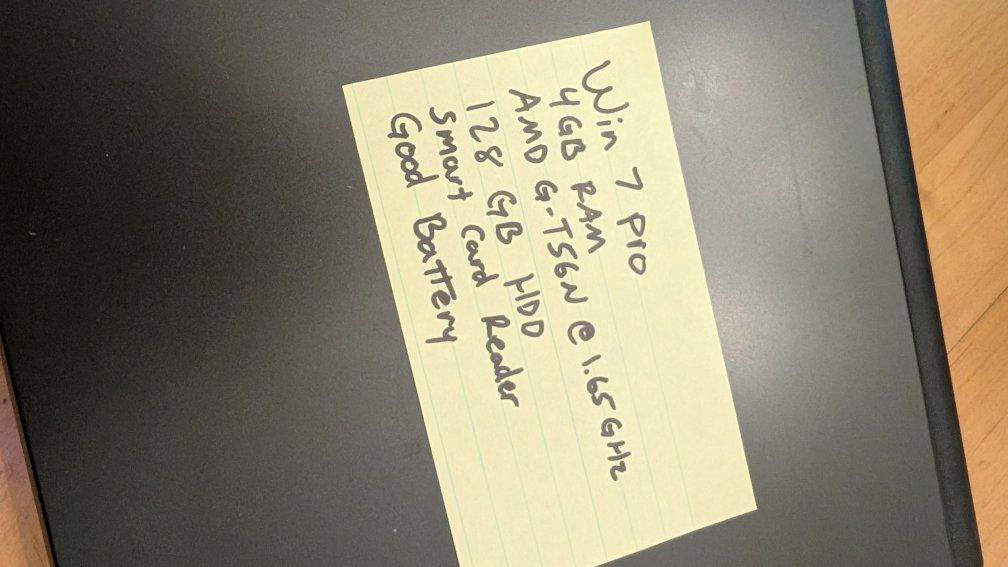 Win 7 Pro
4GB RAM
AMD G-T56N @ 1.65GHz
128 GB HDD
Smart Card Reader
Good Battery